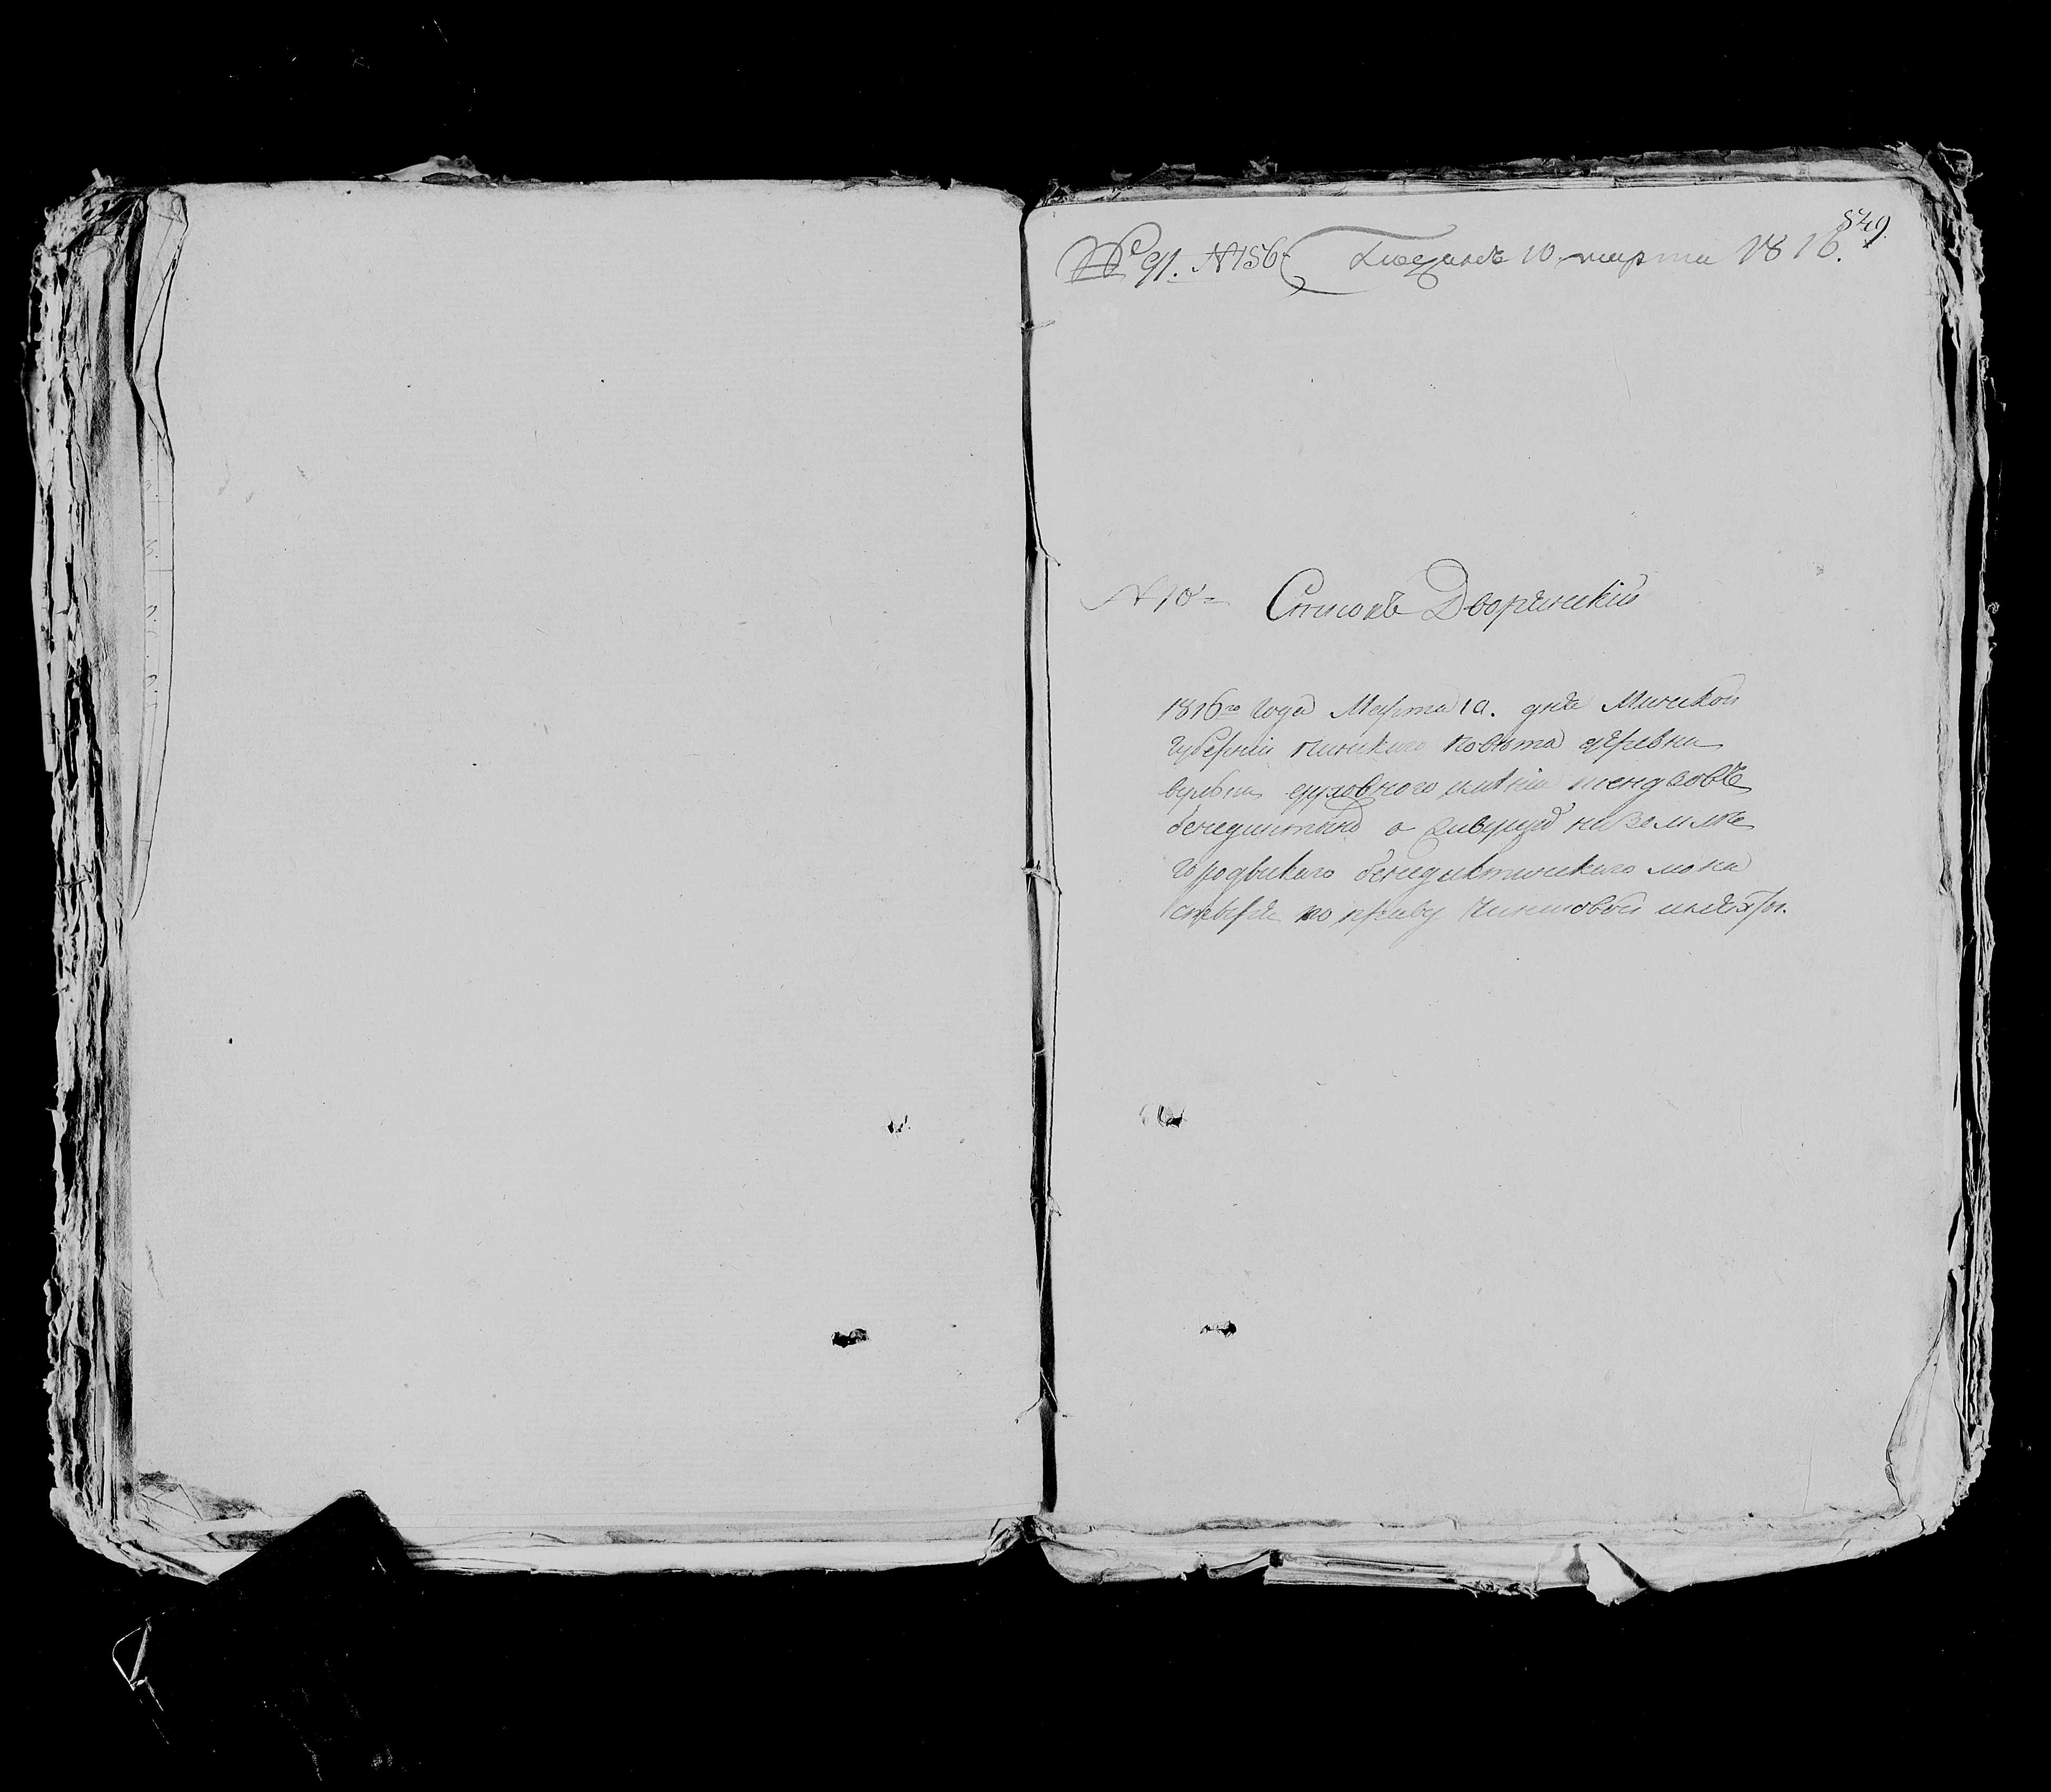 849.
91. №156. Поданъ 10 марта 1816.
№10 Списокъ Дворянскій
1816го года Марта 10. дня Минской
губерніи пинского повѣта деревни
вульки духовного имѣнія
о живущей на землѣ
городыскаго бенедиктинскаго мона
стыря по праву чиншовой шляхты.